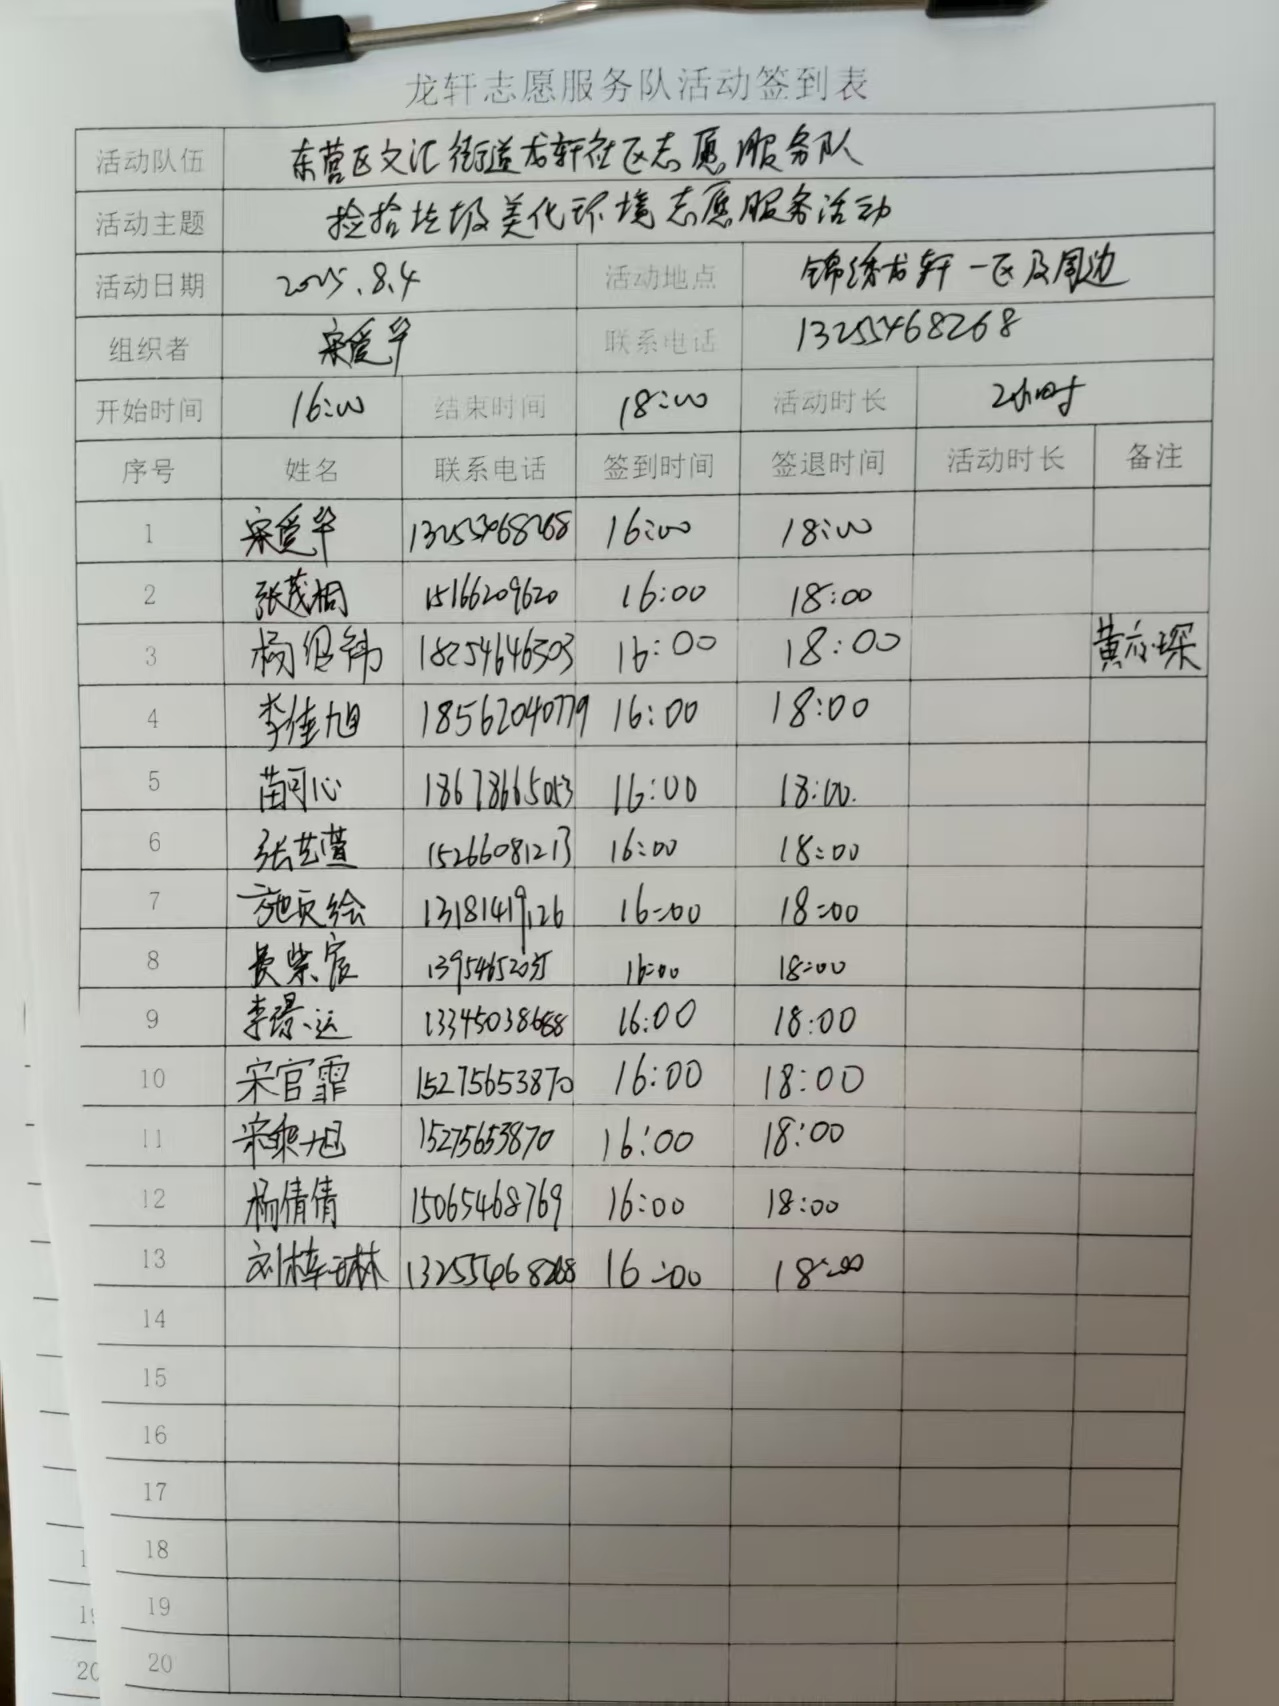 龙轩志愿服务队活动签到表
活动队伍 东营区文汇街道龙轩社区志愿服务队
活动主题 捡拾垃圾美化环境志愿服务活动
活动日期 2025.8.4 活动地点 锦绣龙轩一区及周边
组织者 宋爱华 联系电话 13255468268
开始时间 16:00 结束时间 18:00 活动时长 2小时
序号 姓名 联系电话 签到时间 签退时间 活动时长 备注
1 宋爱华 13255468268 16:00 18:00
2 张茂桐 15166209620 16:00 18:00
3 杨 18254646303 16:00 18:00 黄
4 李佳旭 18562040779 16:00 18:00
5 苗可心 18678665053 16:00 18:00.
6 张艺萱 15266081213 16:00 18:00
7 16:00 18:00
8 16:00 18:00
9 李璟运 13345038688 16:00 18:00
10 宋官霏 15275653870 16:00 18:00
11 宋 旭 15275653870 16:00 18:00
12 杨倩倩 15065468769 16:00 18:00
13 刘梓林 13255468268 16:00 18:00
14
15
16
17
18
19
20